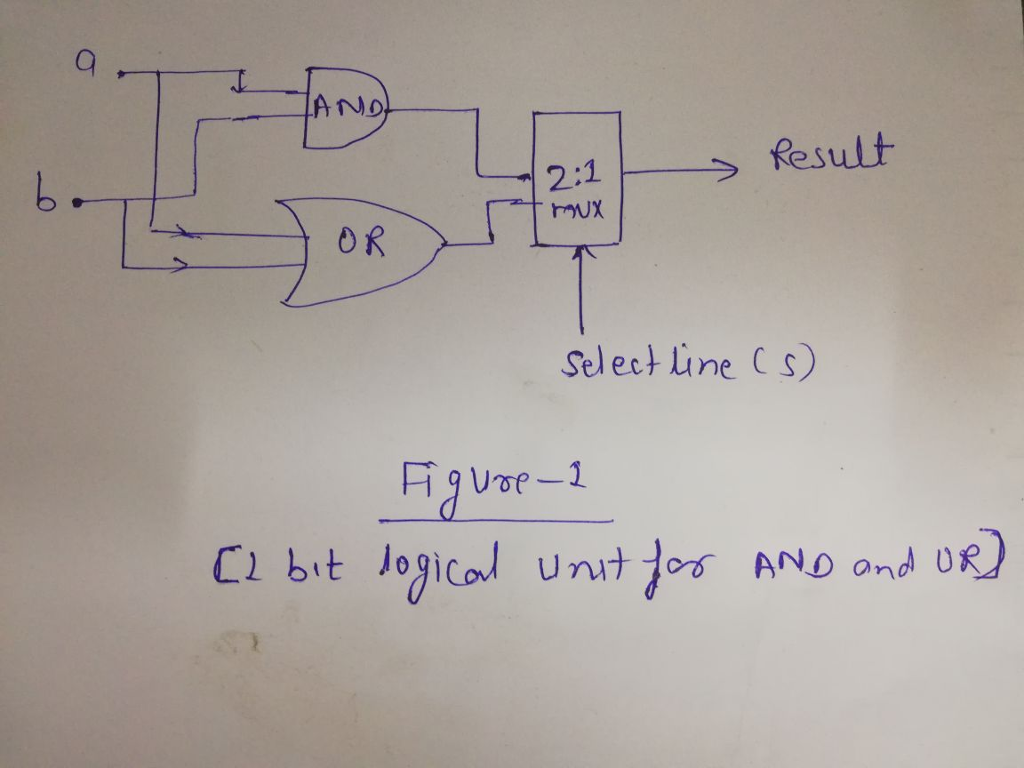 a
AND
2:1
mux
Result
b
OR
Select line (s)
Figure-1
[1 bit logical unit for AND and OR]